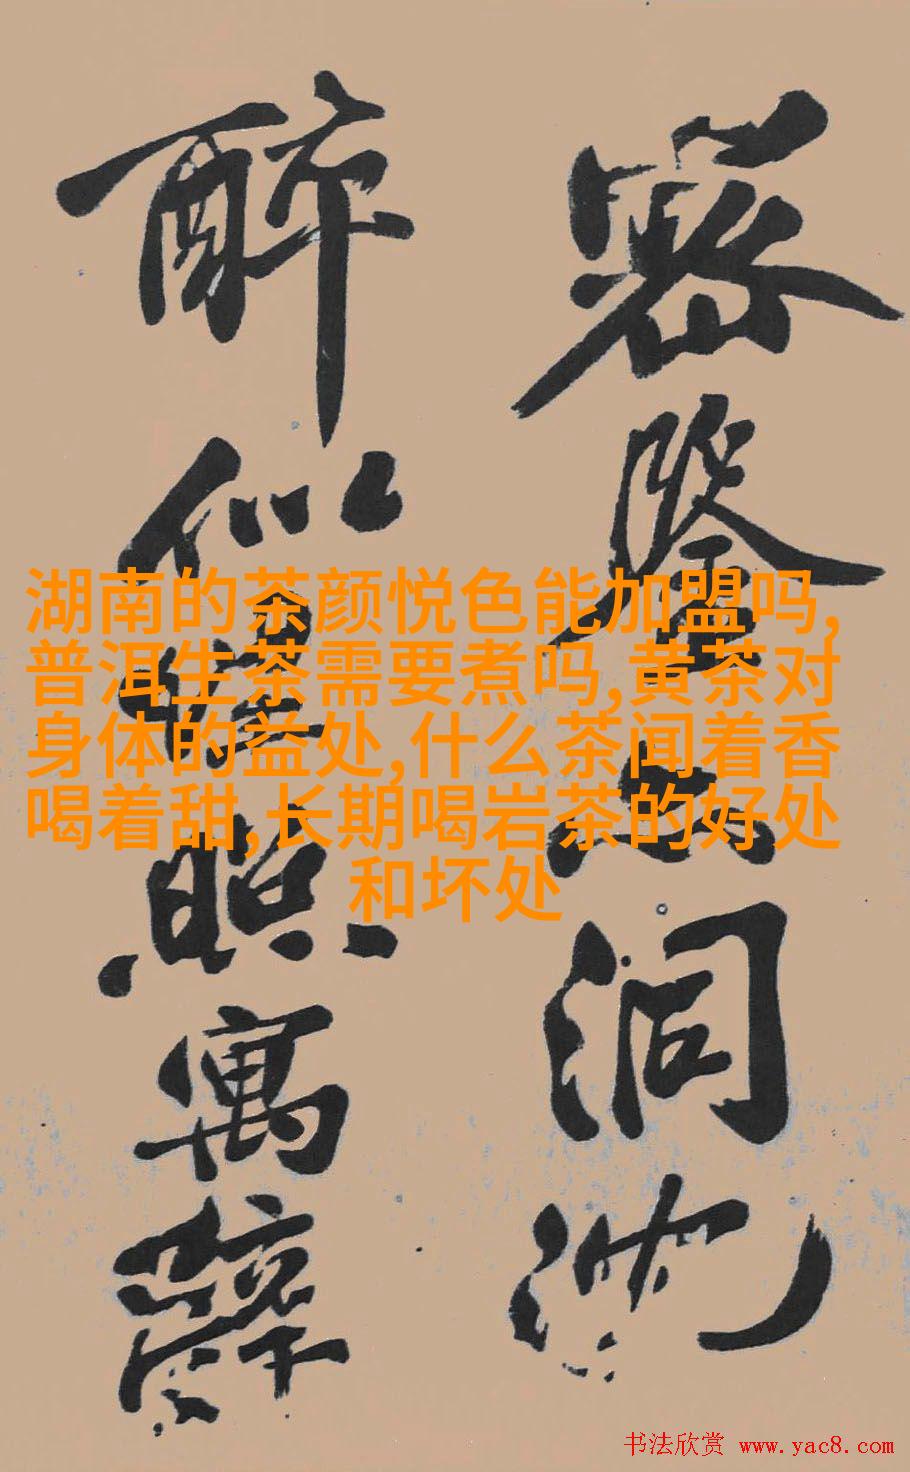 密鉴
洞
醉似
照寓辞
湖南的茶颜悦色能加盟吗,
普洱生茶需要煮吗,黄茶对
身体的益处,什么茶闻着香
喝着甜,长期喝岩茶的好处
和坏处
书法欣赏 www.yac8.com